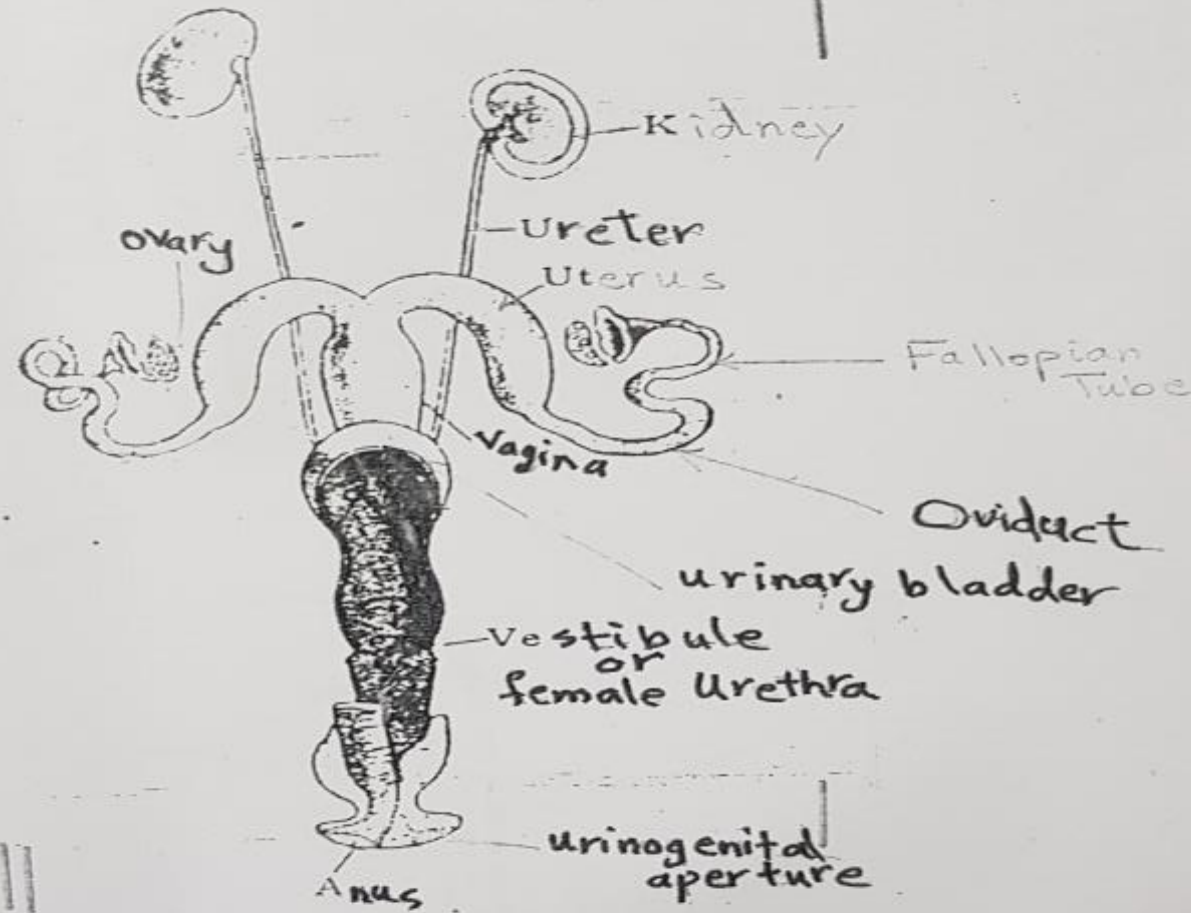 Kidney
Ureter
ovary
Uterus
Fallopian
Tube
Vagina
Oviduct
urinary bladder
Vestibule
or
female Urethra
urinogenital
aperture
Anus